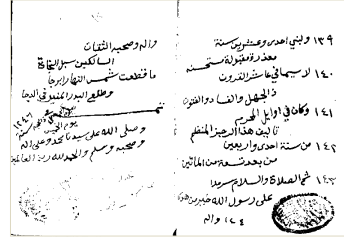 ١٣٩ ولبني احدى وعشرين سنة
معذرة مقبولة مستحسنه
١٤٠ لا سيما في عاشر القرون
ذ الجهل والفساد والفتون
١٤١ وكان في اوايل المحرم
تاليف هذا الرجز المنظم
١٤٢ من سنة احدى واربعين
من بعد تسعة من المائين
١٤٣ ثم الصلاة والسلام سرمدا
على رسول الله خير من هدى
واله
واله وصحبه الثقات
السالكين سبل النجاة
ما قطعت شمس النهار ابرجا
وطلع البدر المنير في الدجا
يوم
وصلى الله على سيدنا محمد وعلى اله
وصحبه وسلم والحمد لله رب العالمين